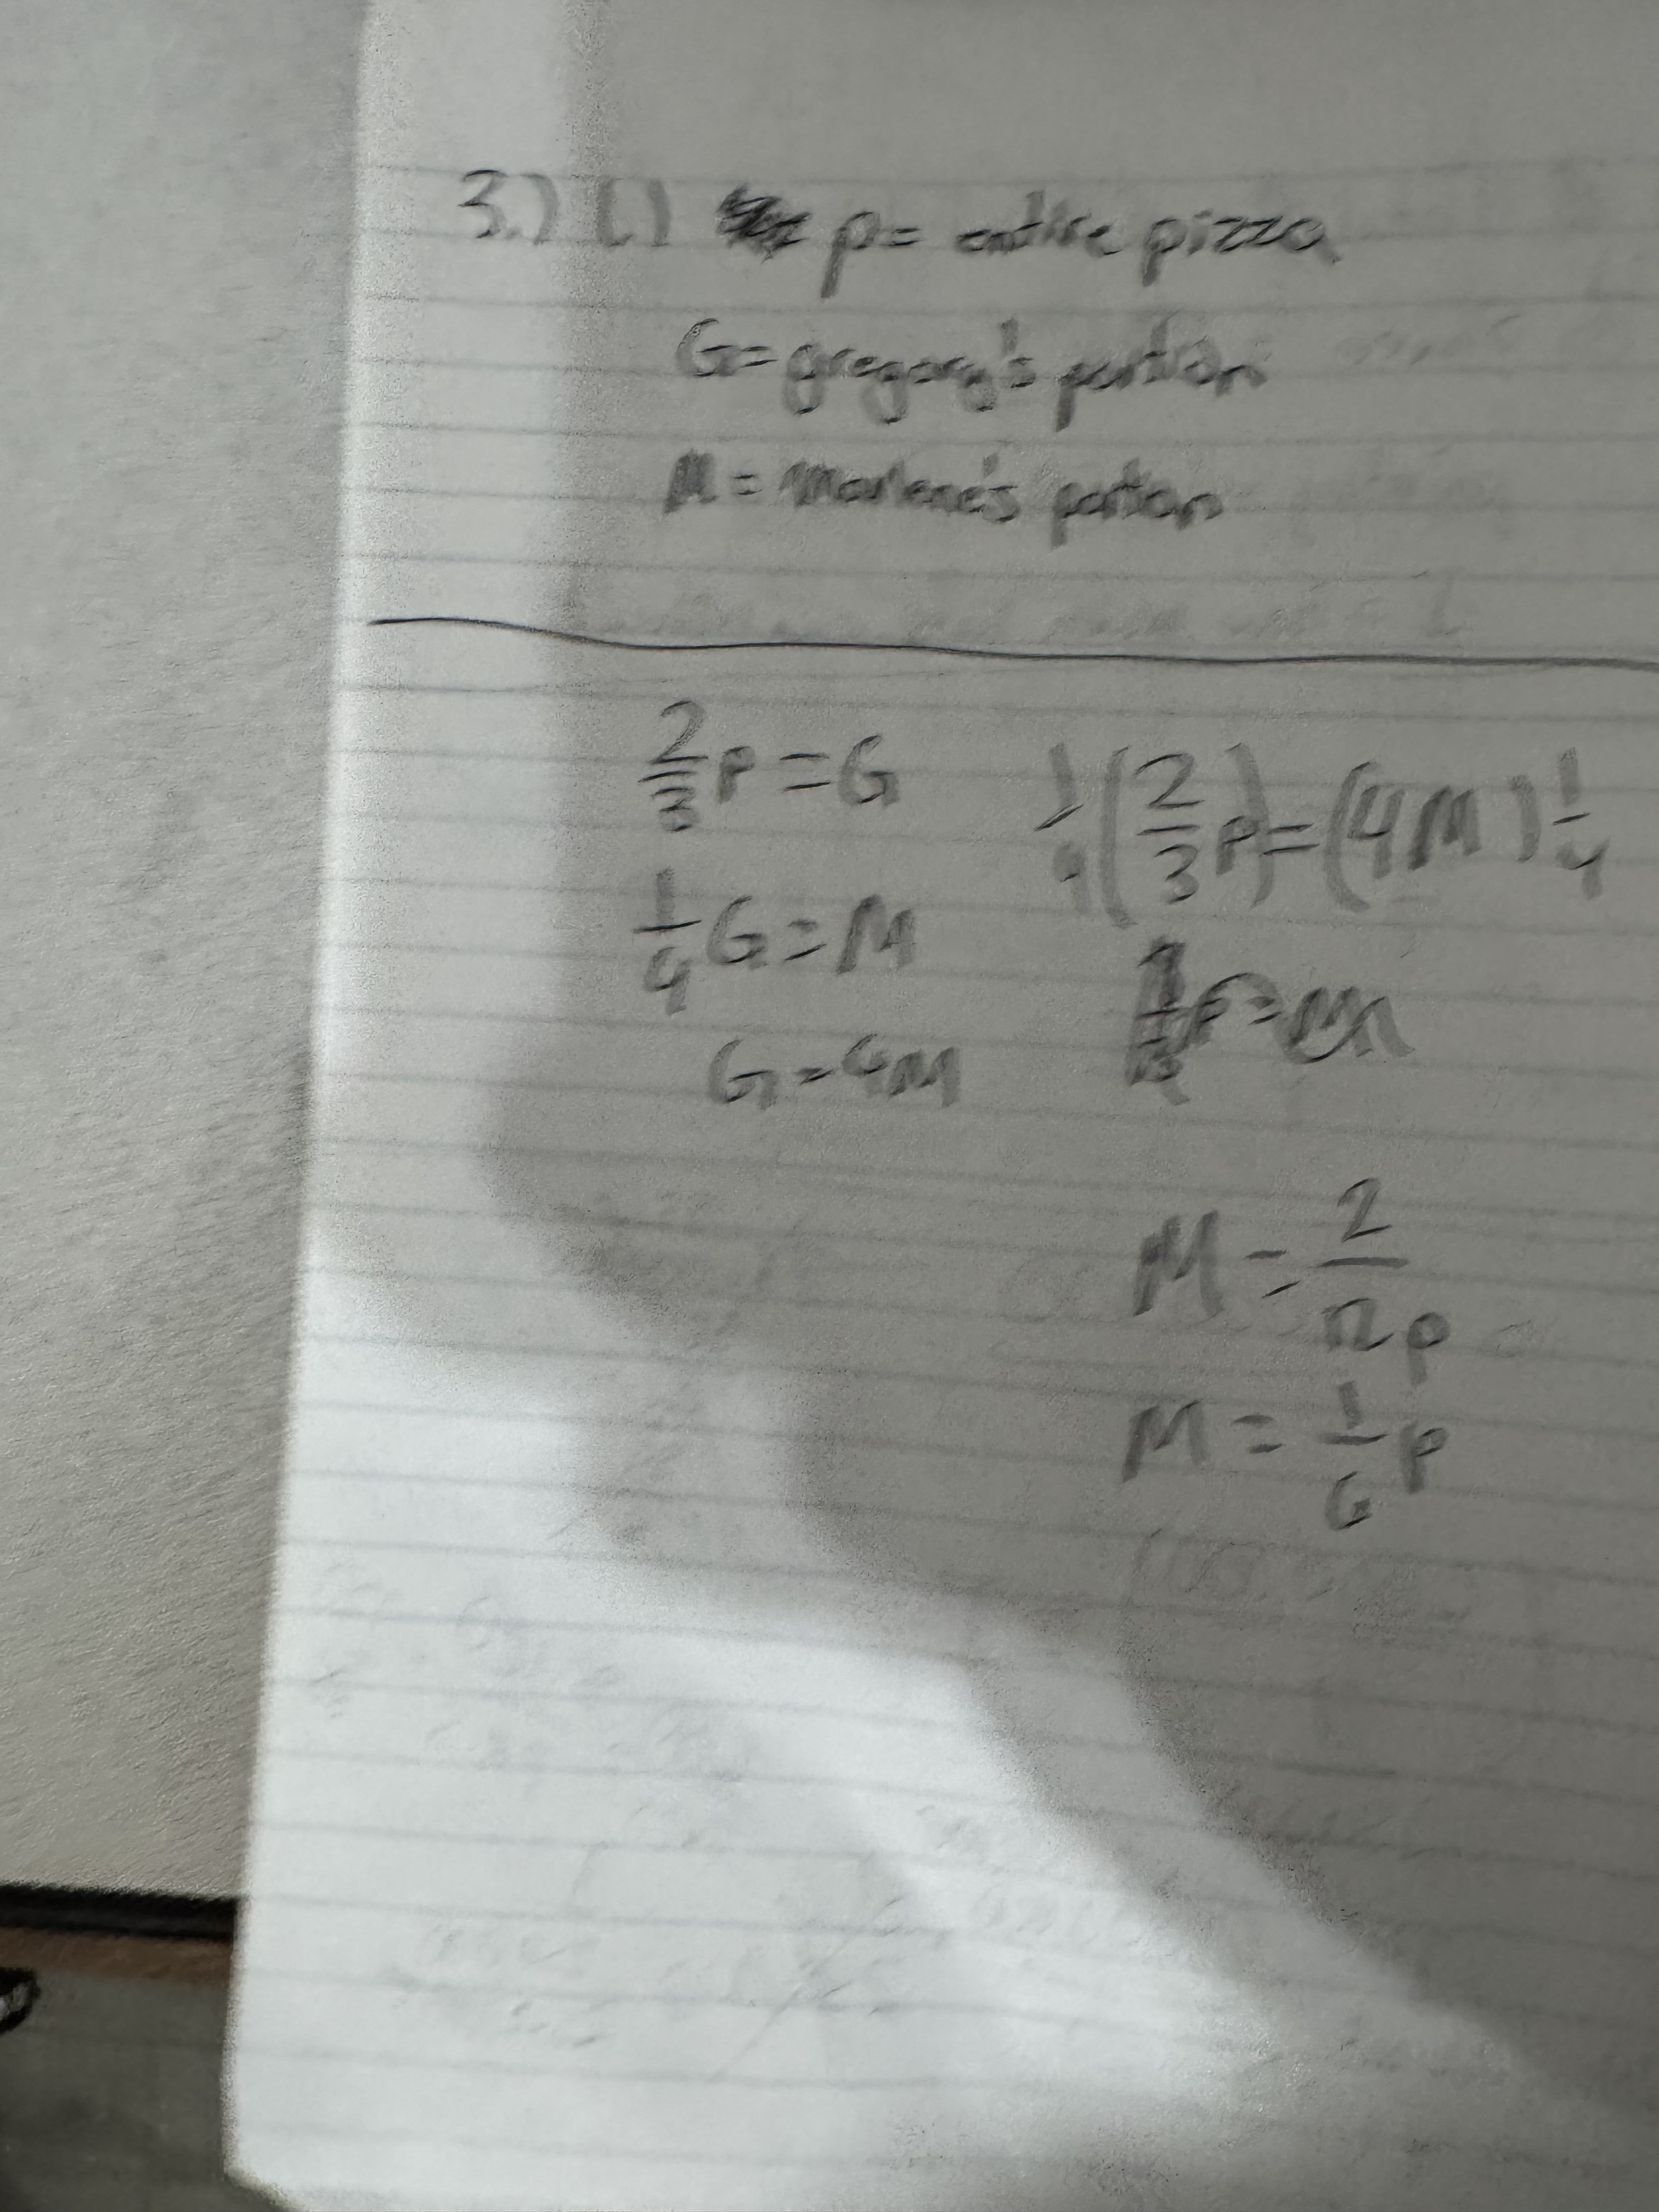 3.) (.) p = entire pizza
G = gregory's portion
M = Marlene's portion
2/3 P = G
1/4 G = M
G = 4M
1/4 (2/3 P) = (4M) 1/4
M = 2/12 P
M = 1/6 P